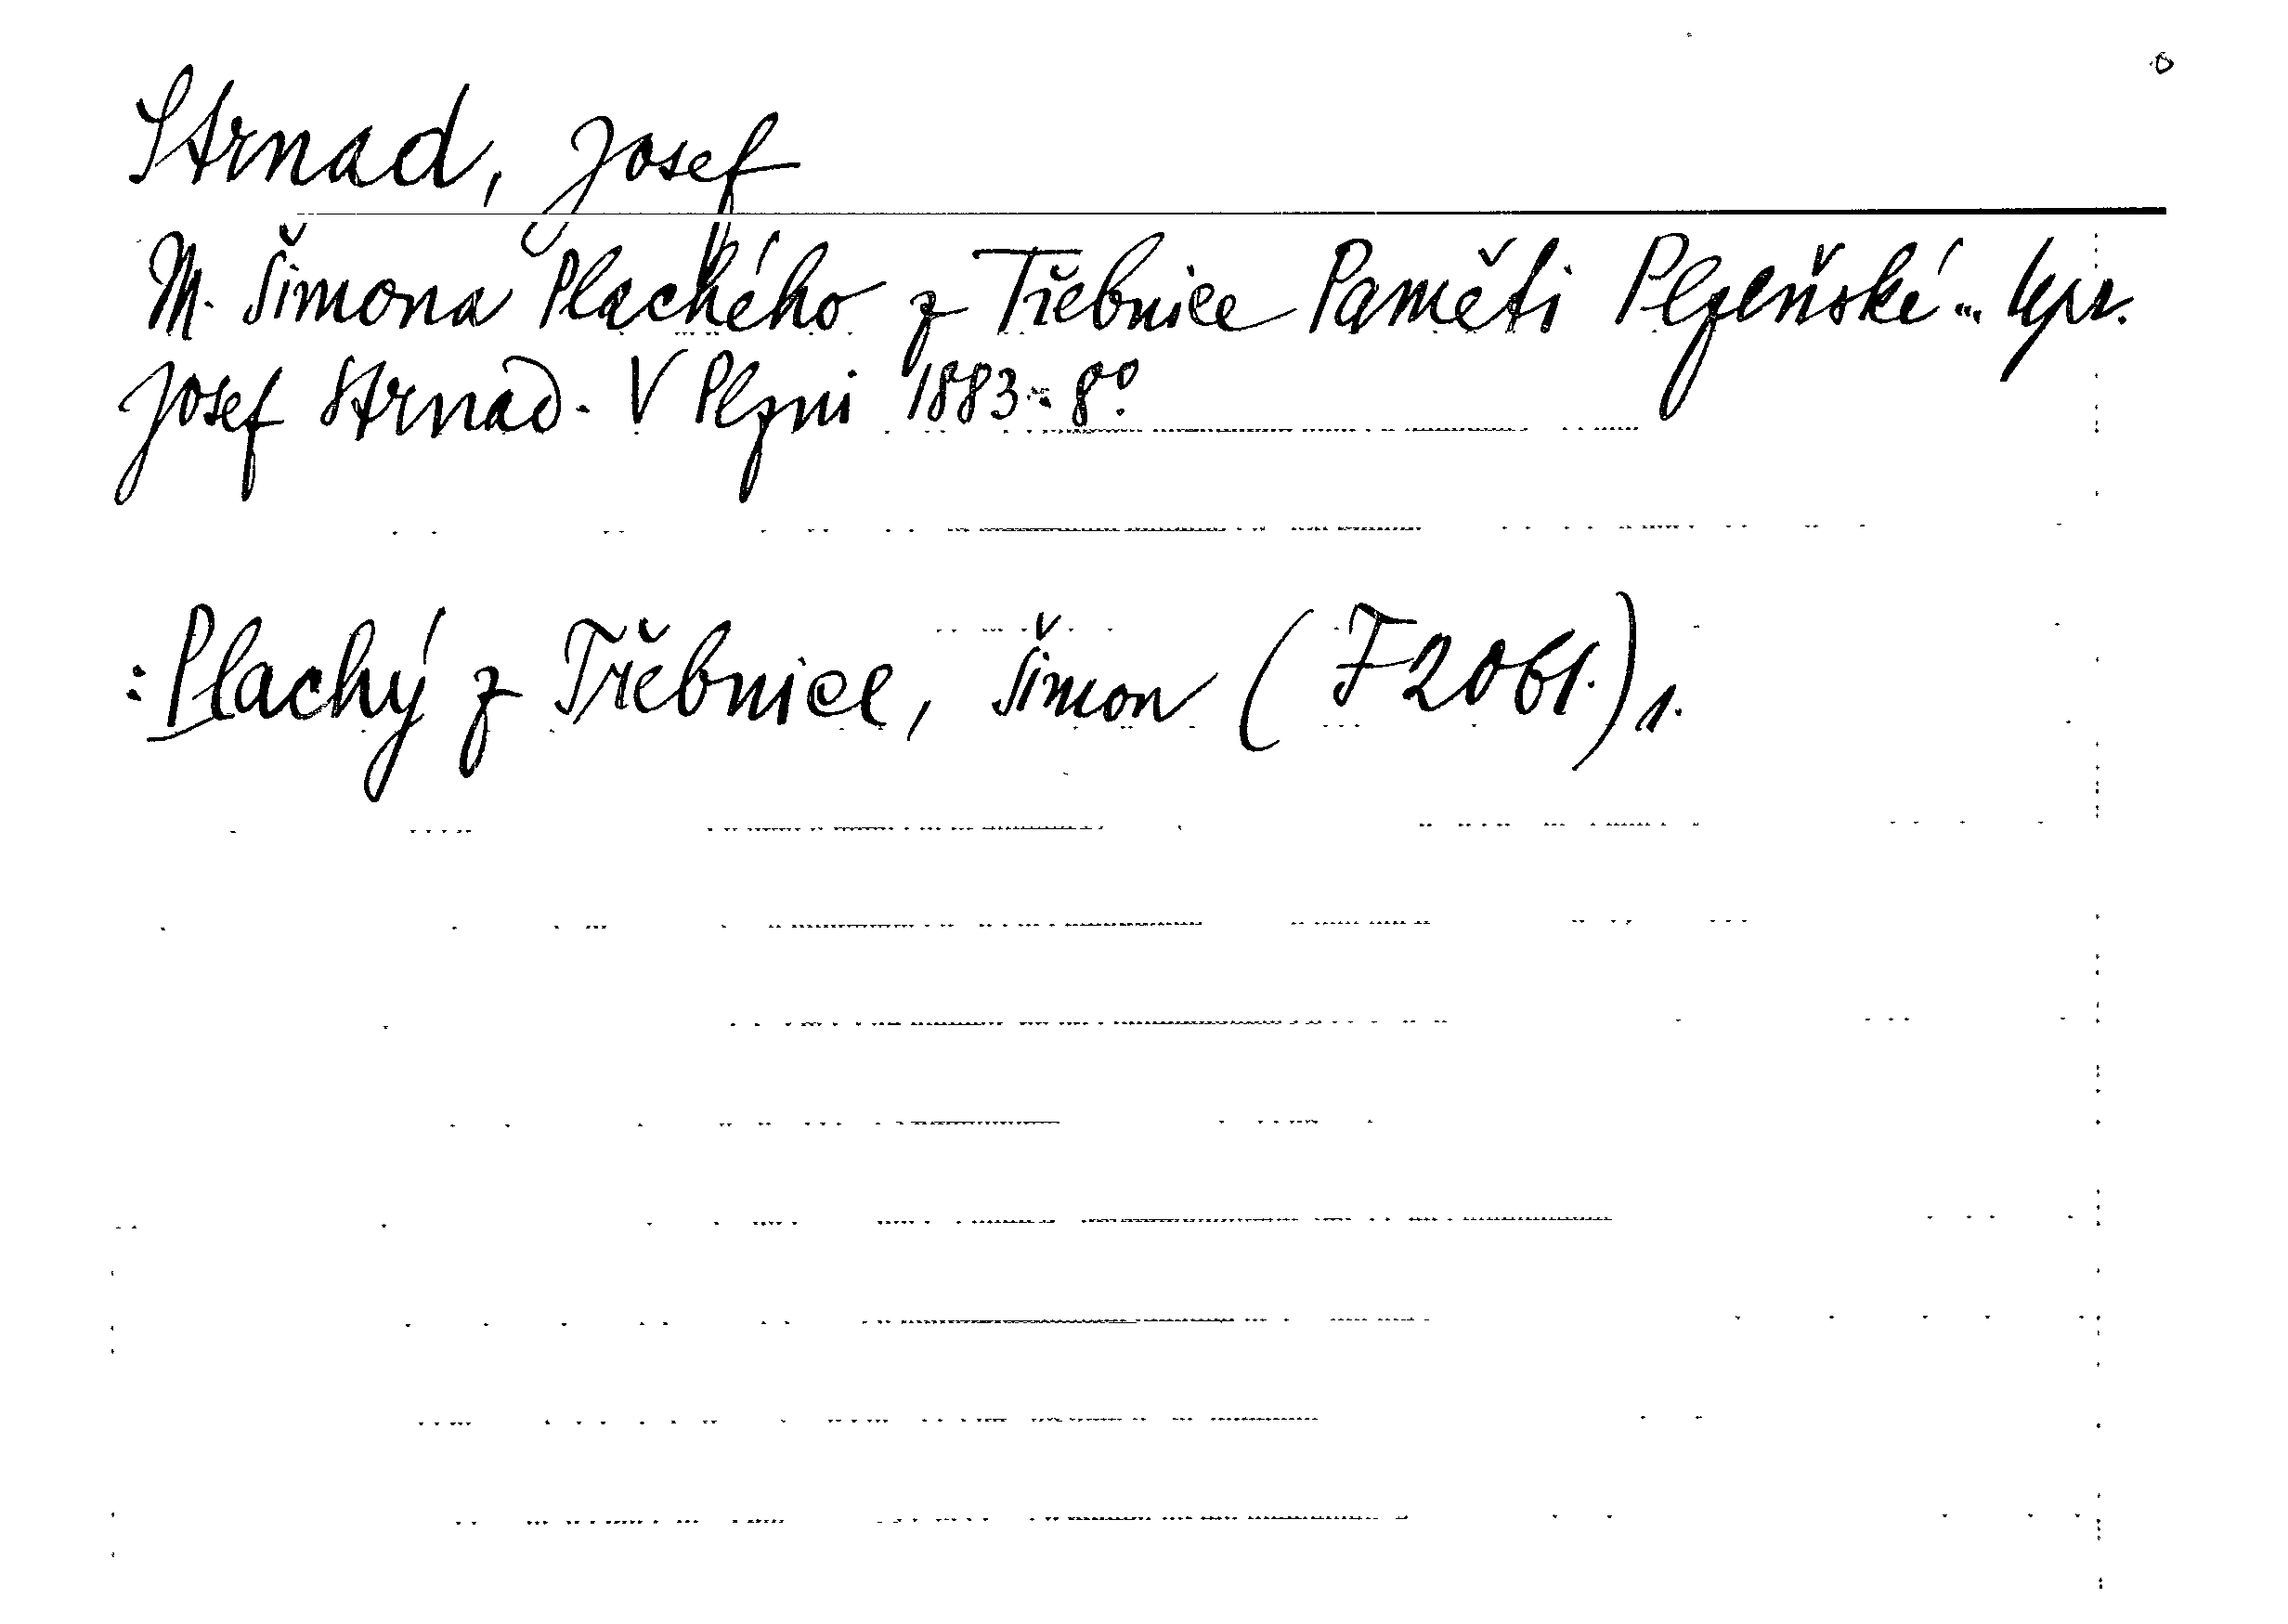 Strnad, Josef
M. Šimona Plachého z Třebnice Paměti Plzeňské... Upr.
Josef Strnad. V Plzni 1883. 8°.
: Plachý z Třebnice, Šimon (F 2061.) 1.